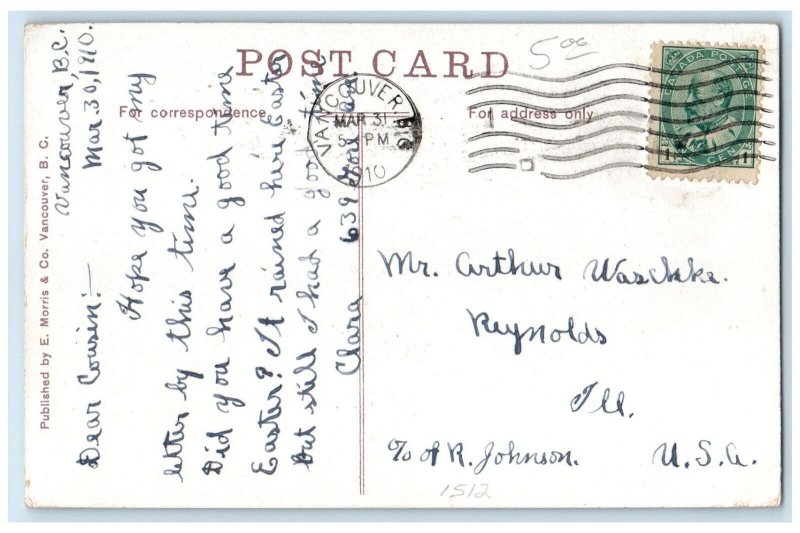 POST CARD
5.00
For correspondence
For address only
VANCOUVER, B.C.
MAR 31
5 PM
1910
CANADA POSTAGE
1 CENT 1
Published by E. Morris & Co. Vancouver, B. C.
Vancouver, B.C.
Mar. 30, 1910.
Dear Cousin:—
Hope you got my
letter by this time.
Did you have a good time
Easter? It rained here Easter
but still I had a good time
Clara 639
Mr. Arthur Waschke.
Reynolds
Ill.
% of R. Johnson. U.S.A.
1512